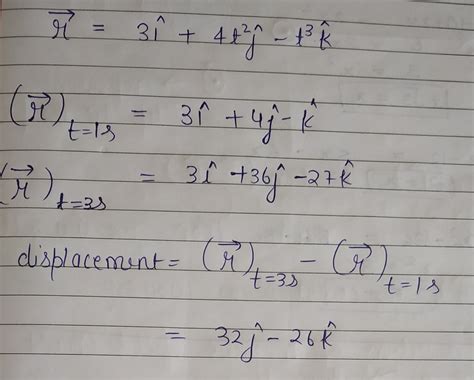 r⃗ = 3î + 4t²ĵ - t³k̂
(r⃗)t=1s = 3î + 4ĵ - k̂
(r⃗)t=3s = 3î + 36ĵ - 27k̂
displacement = (r⃗)t=3s - (r⃗)t=1s
= 32ĵ - 26k̂